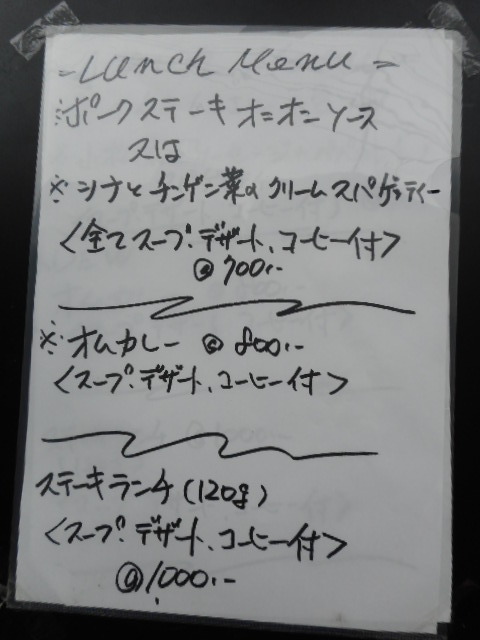 - Lunch Menu -
※ポークステーキオニオンソース
又は
※シナとチンゲン菜のクリームスパゲッティー
<全てスープ.デザート、コーヒー付>
@700.-
※オムカレー @800.-
<スープ.デザート、コーヒー付>
ステーキランチ(120g)
<スープ.デザート、コーヒー付>
@1000.-